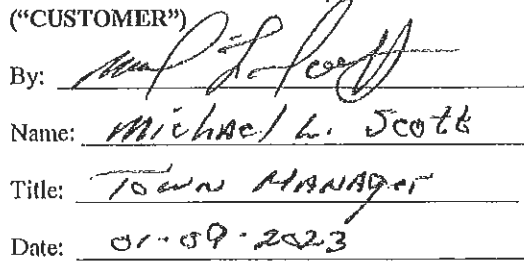 ("CUSTOMER")
By:
Name: Michael L. Scott
Title: Town Manager
Date: 01-09-2023